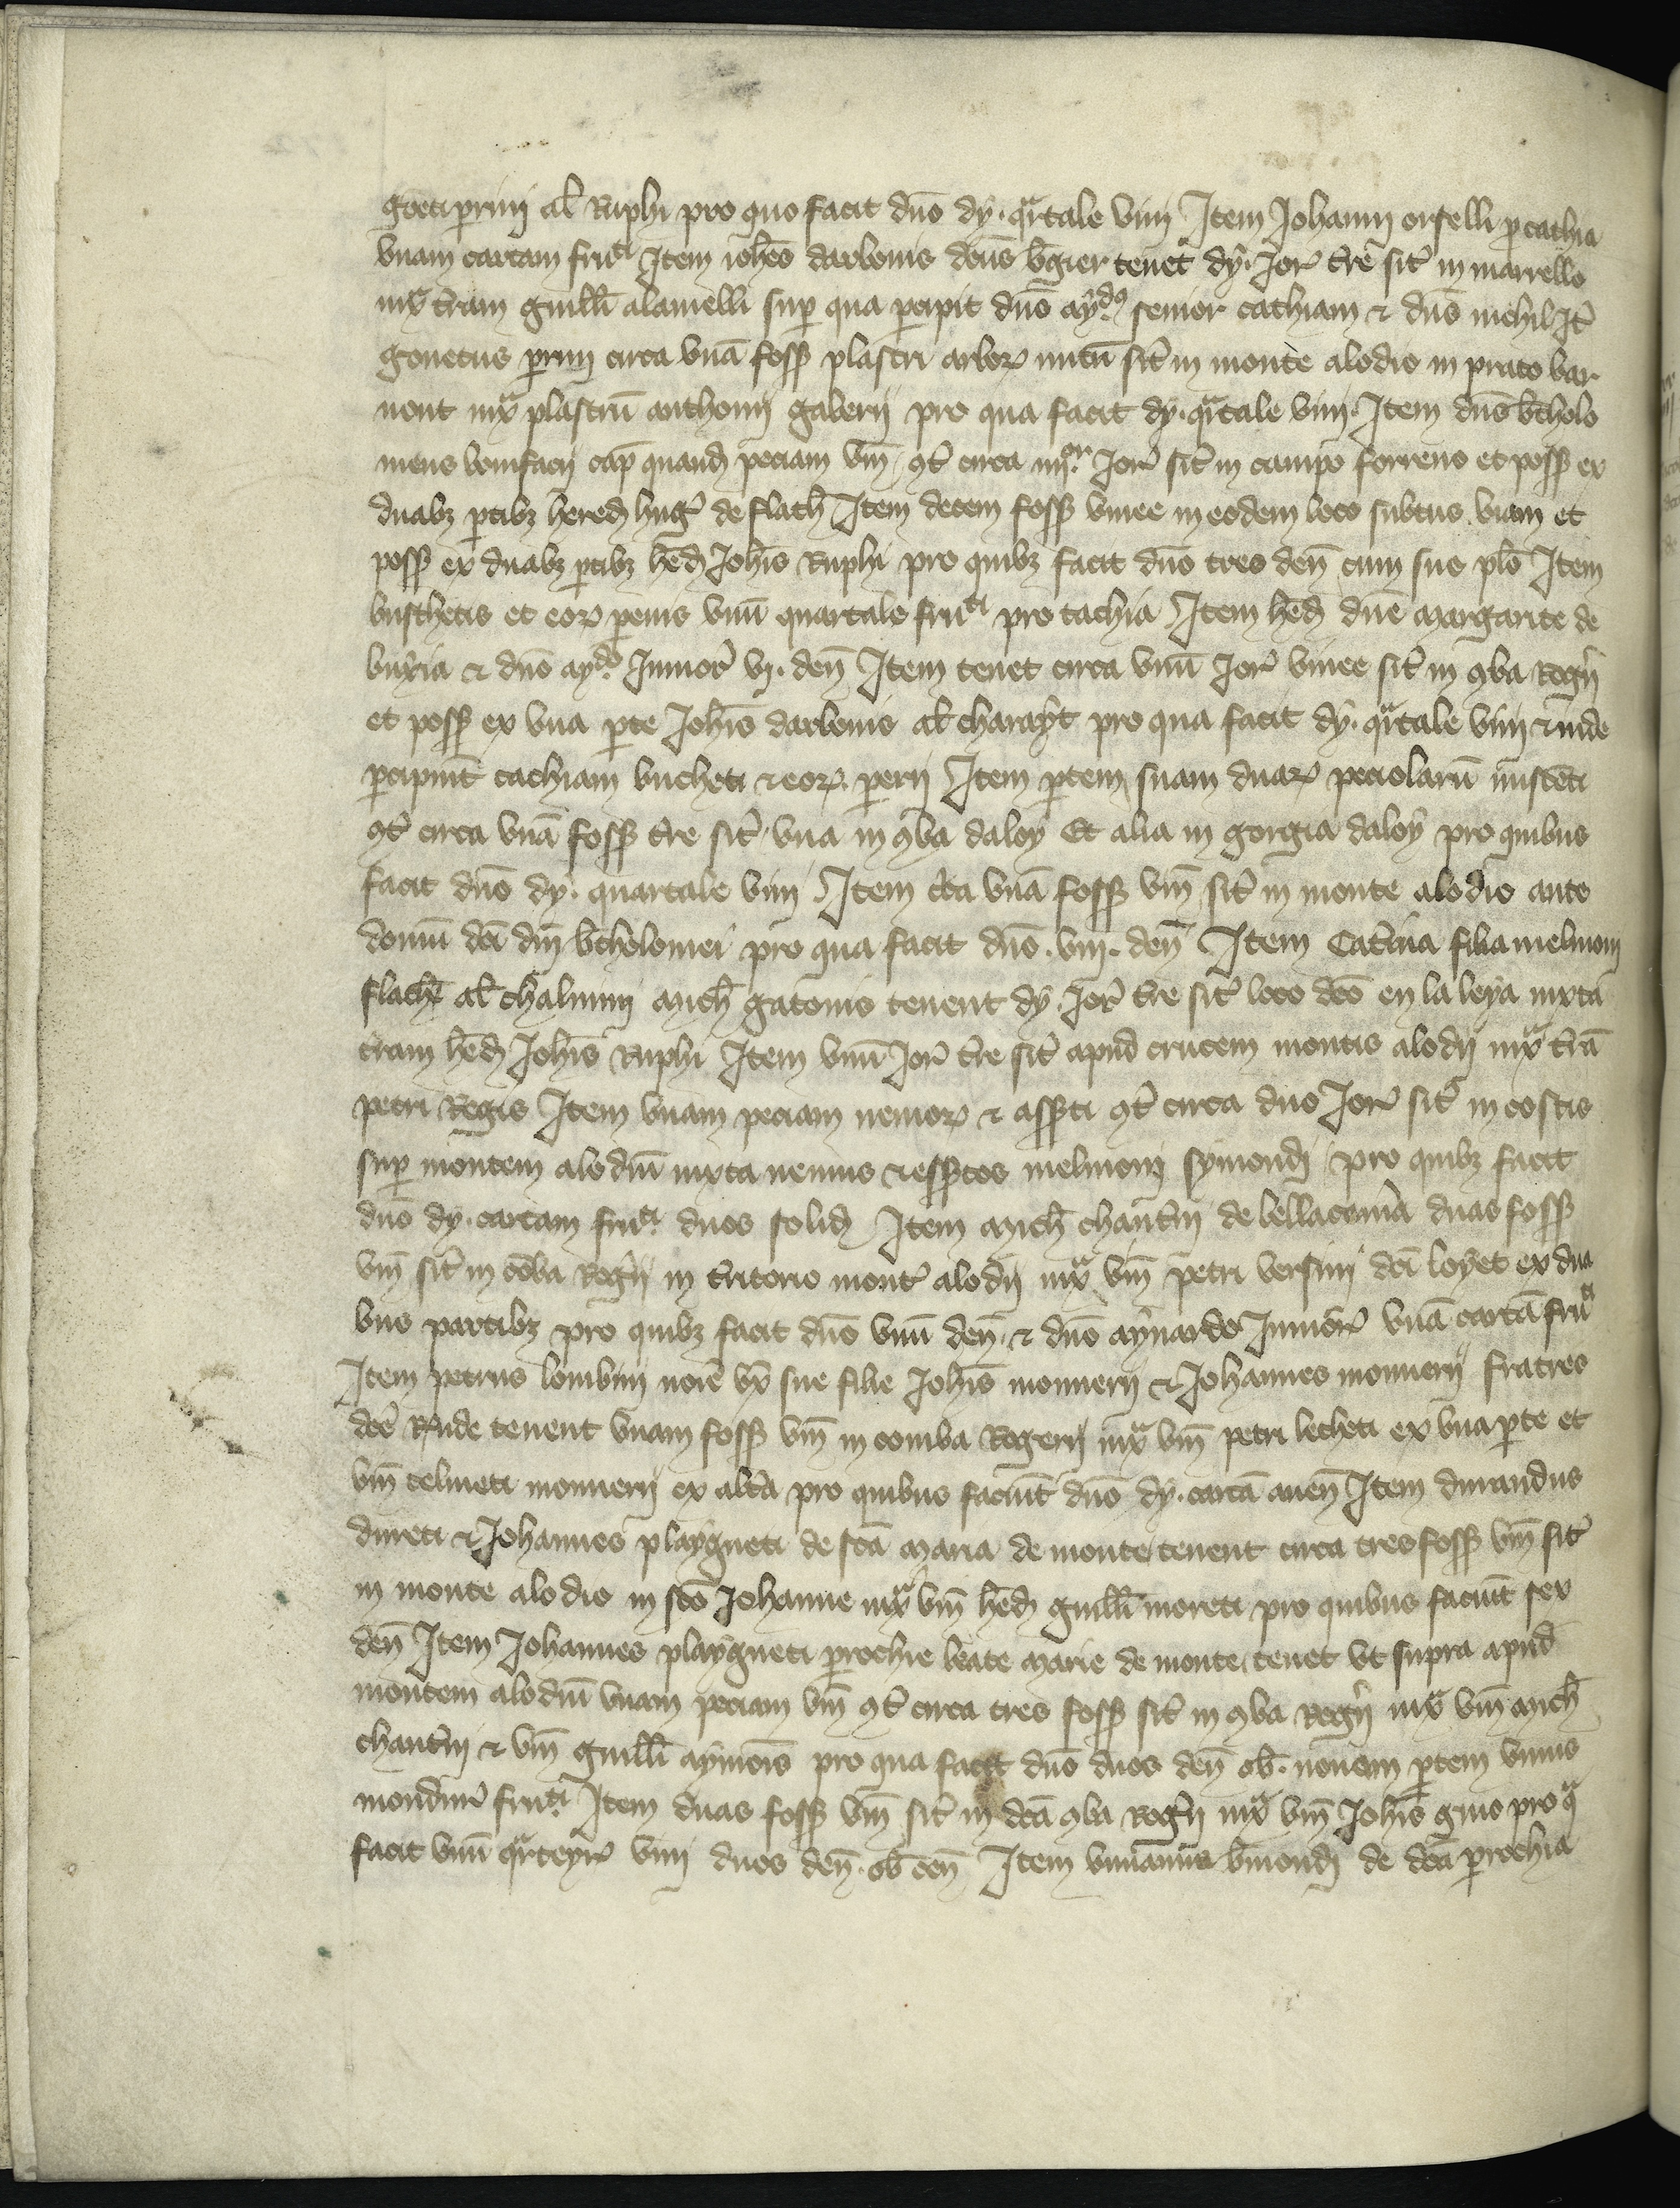 goneti perrini al Ruphi pro quo facit dno dy. qrtale vini Item Johanni orselli p tachia
vnam cartam fruti Item iohes darbonis dcus bgier tenet dy. Jor tre sit in marrello
iux tram guilli alamelli sup qua pcipit dno ay.dus senior tachiam & dno nichil It
gonetus prini circa vna foss plastri arbor mitu sit in monte alodio in prato bar
nont iux plastru anthonij galberij pro qua facit dy. qrtale vini. Item dns btholo
meus bonifacij cap quand peciam vin 9t circa iiijor Jor sit in campo forreno et poss ex
duabz ptibz hered hug de flach Item decem foss vinee in eodem loco subtus viam et
poss ex duabz ptibz hed Johis Ruphi pro quibz facit dno tres den cum suo plo Item
busthetis et eor penis vnu quartale fruti pro tachia Item hed dne Margarite de
buxia & dno aydo Junior vj. den Item tenet circa vnu Jor vinee sit in 9ba Rogerij
et poss ex vna pte Johis darbonis al charayt pro qua facit dy. qrtale vini & inde
pcipiunt tachiam bucheti & eor perij Item ptem suam duar peciolaru
9t circa vna foss tre sit vna in 9ba daloy Et alia in gorgia daloy pro quibus
facit dno dy. quartale vini Item cca vna foss vin sit in monte alodio ante
domu dci dni btholomei pro qua facit dno .viij. den Item Caterina filia melmoni
flach al chalmini Mich gatonis tenent dy Jor tre sit loco dco en la leya iuxta
tram hed Johis Ruphi Item vnu Jor tre sit apud crucem montis alodij iux tra
petri Regis Item vnam peciam nemor & asspti 9t circa duo Jor sit in costis
sup montem alodiu iuxta nemus & esspctos melmoni symondi pro quibz facit
dno dy. cartam fruti duos solid Item Mich chanterii de bellacomba duas foss
vin sit in coba Rogerij in tritorio mont alodij iux vin petri versini dci loyet ex dua
bus partibz pro quibz facit dno vnu den. & dno aynardo Junior vna carta fruti
Item petrus lombini noie vx sue filie Johis monnerij & Johannes monnerij fratres
dce Rude tenent vnam foss vin in comba Rogerij iux vin petri lecheti ex vna pte et
vin telmeti monnerij ex altera pro quibus faciut dno dy. carta auen Item durandus
dureti & Johannes playgneti de sca Maria de monte tenent circa tres foss vin sit
in monte alodio in sco Johanne iux vin hed guilli moreti pro quibus faciut sex
den Item Johannes playgneti prochie beate Marie de monte tenet vt supra apud
montem alodiu vnam peciam vin 9t circa tres foss sit in 9ba Rogerij iux vin Mich
chanterii & vin guilli aymois pro qua facit dno duos den ob. nonam ptem vnius
mondure fruti Item duas foss vin sit in dca 9ba Rogerij iux vin Johis grus pro qa
facit vnu qrteyr vini duos den. ob cen Item viuianus bmondi de dca prochia